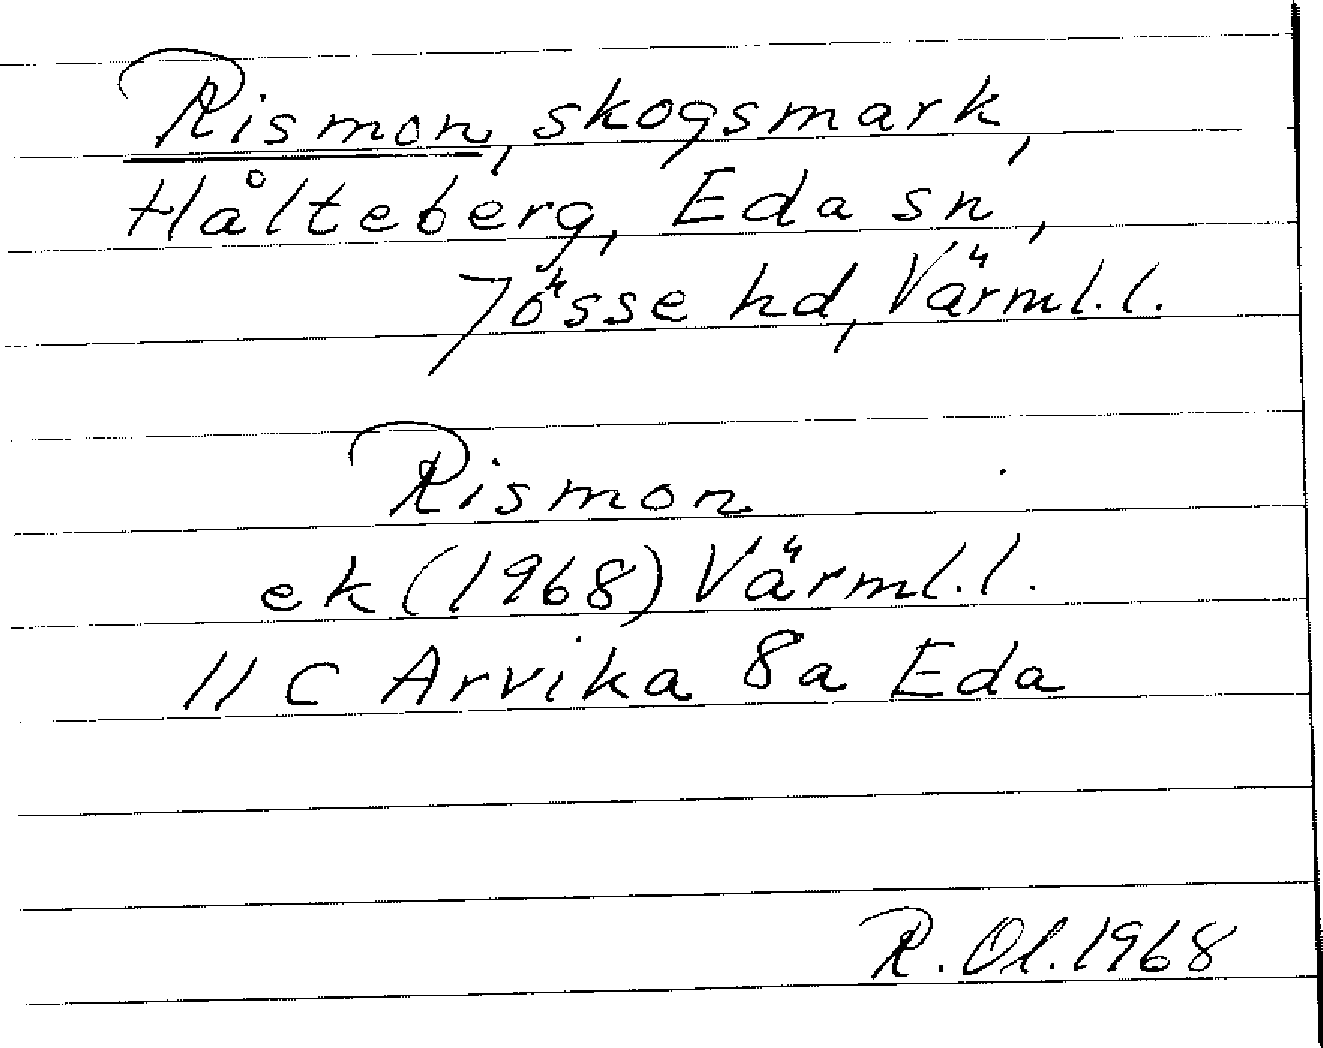 Rismon, skogsmark,
Hålteberg, Eda sn,
Jösse hd, Värml. l.
Rismon
ek (1968) Värml. l.
11 C Arvika 8a Eda
R. Ol. 1968